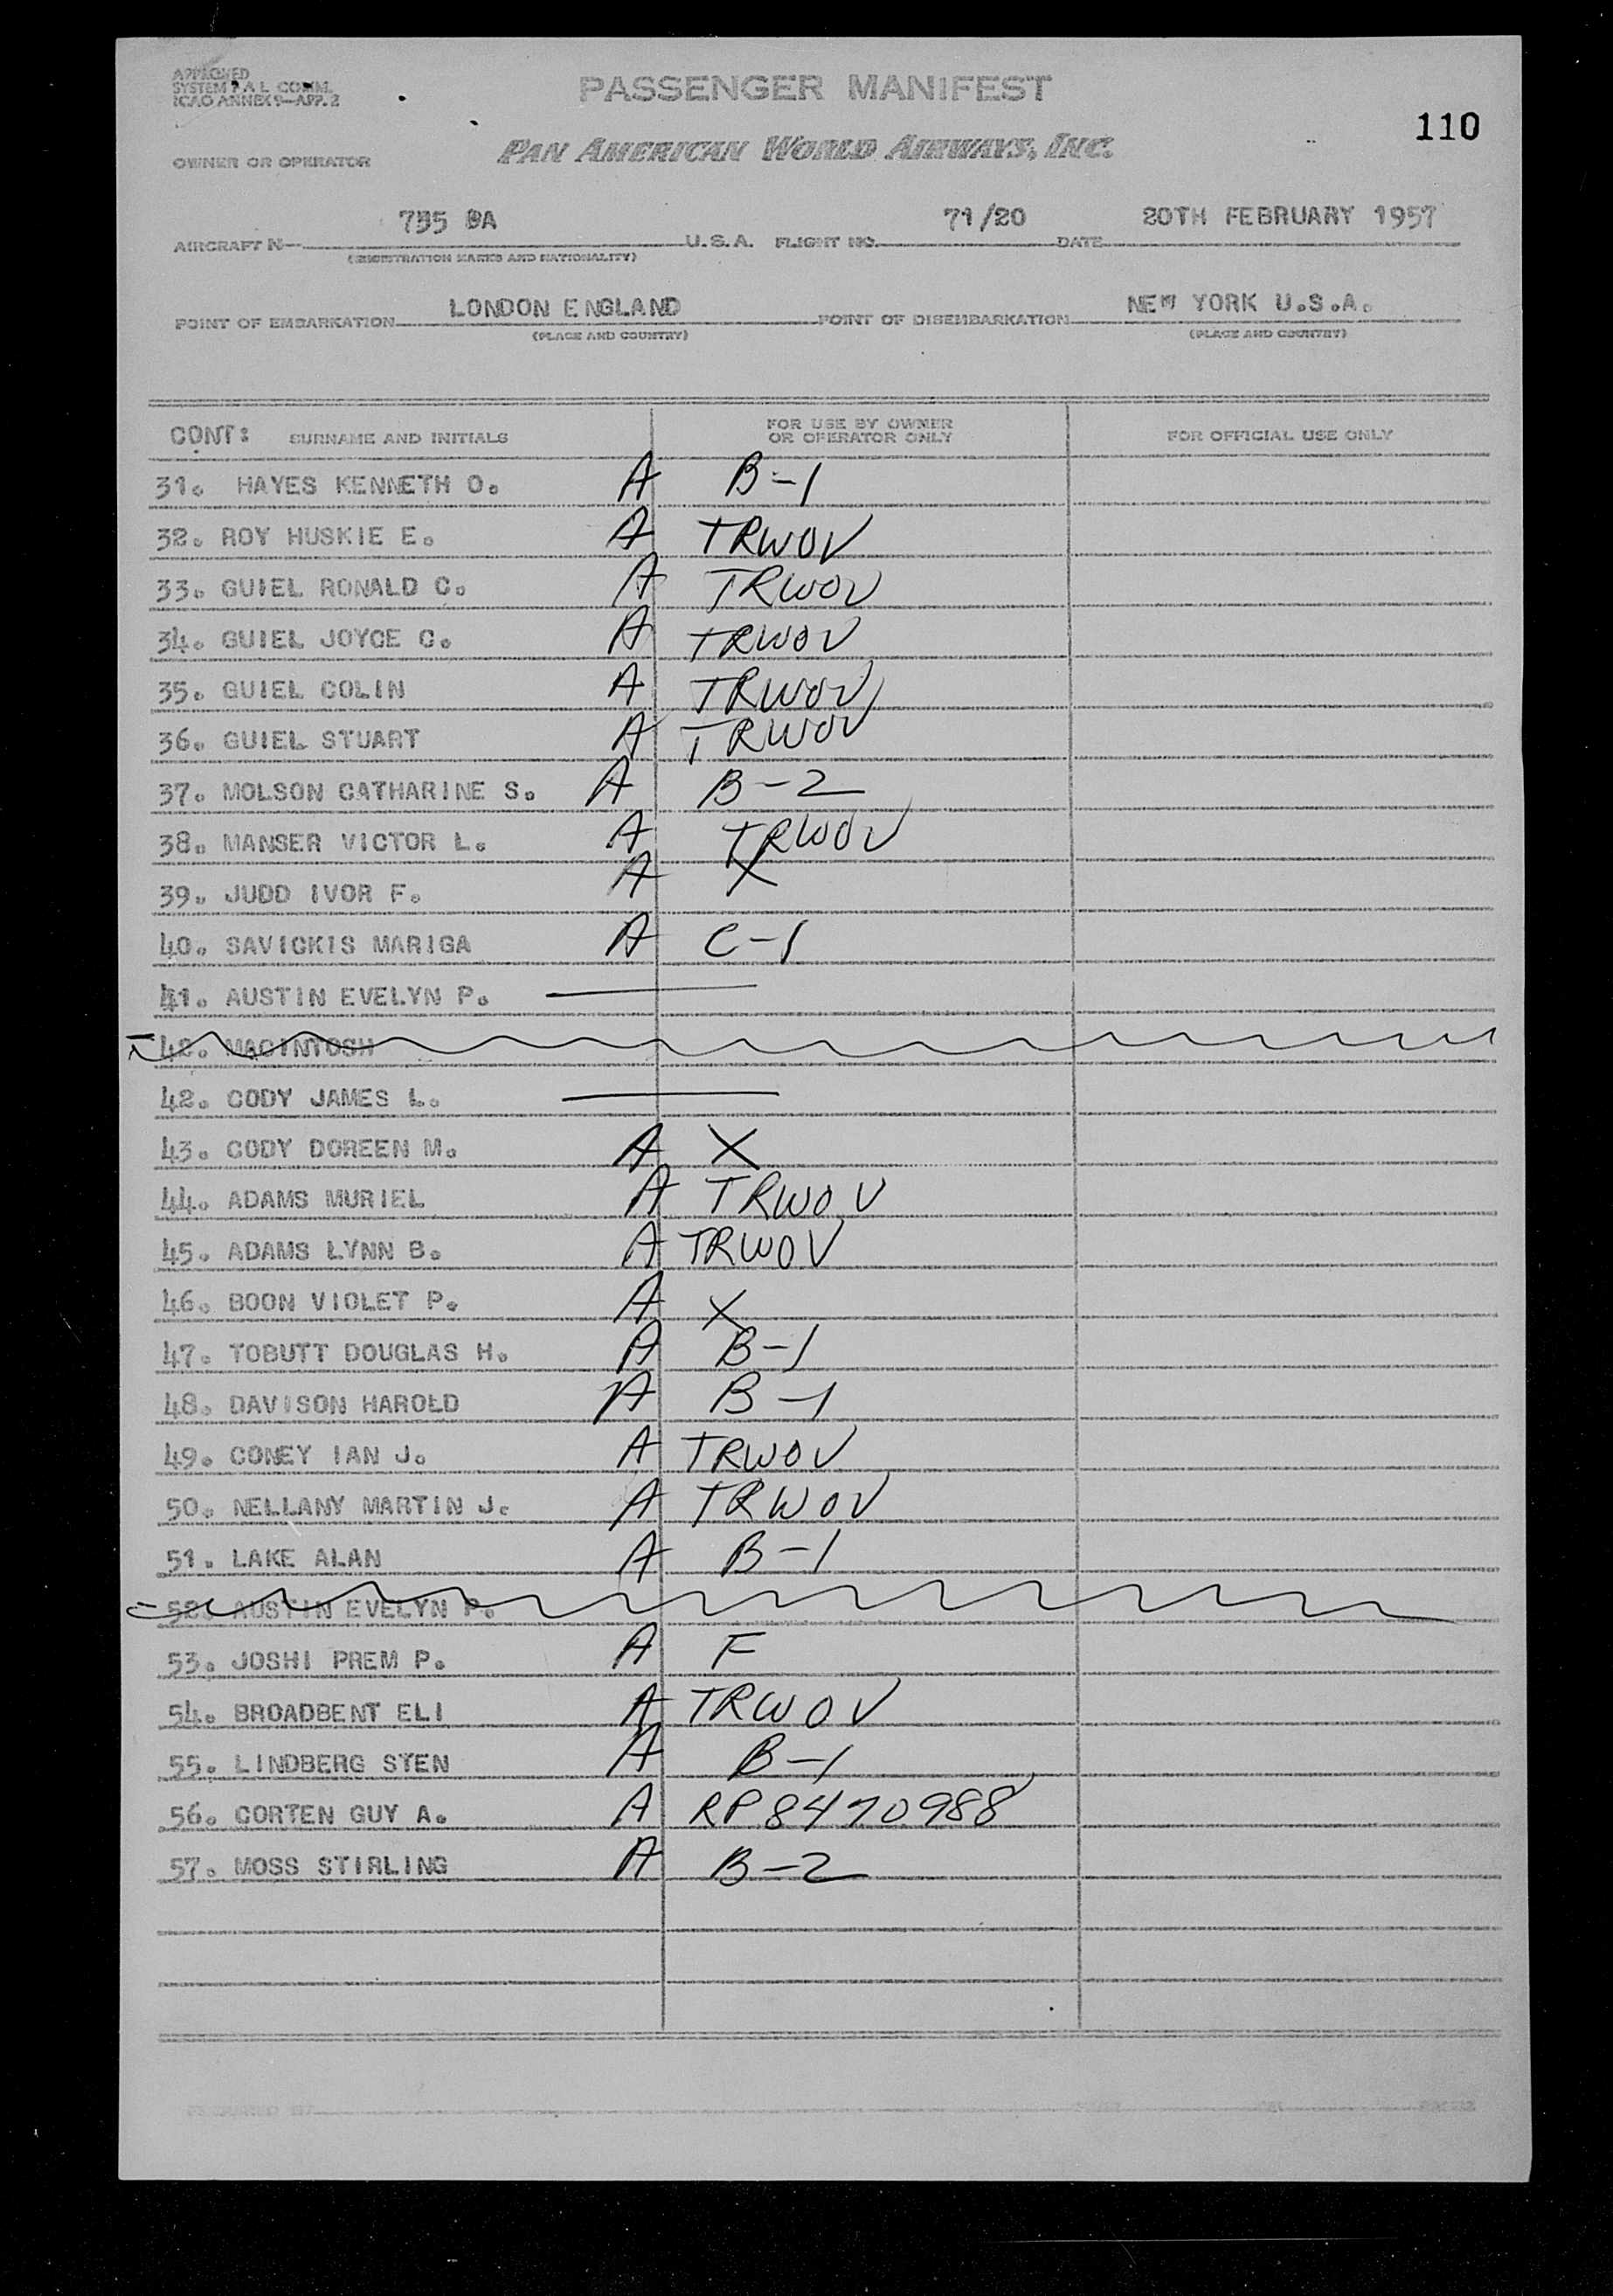 APPROVED
SYSTEM P A L COMM.
ICAO ANNEX 9—APP. 2
PASSENGER MANIFEST
110
OWNER OR OPERATOR
PAN AMERICAN WORLD AIRWAYS, INC.
AIRCRAFT N— U.S.A. FLIGHT NO. 71/20 DATE 20TH FEBRUARY 1957
(REGISTRATION MARKS AND NATIONALITY)
POINT OF EMBARKATION LONDON ENGLAND POINT OF DISEMBARKATION NEW YORK U.S.A.
(PLACE AND COUNTRY) (PLACE AND COUNTRY)
CONT: SURNAME AND INITIALS FOR USE BY OWNER OR OPERATOR ONLY FOR OFFICIAL USE ONLY
31. HAYES KENNETH O. A B-1
32. ROY HUSKIE E. A TRWOV
33. GUIEL RONALD C. A TRWOV
34. GUIEL JOYCE C. A TRWOV
35. GUIEL COLIN A TRWOV
36. GUIEL STUART A TRWOV
37. MOLSON CATHARINE S. A B-2
38. MANSER VICTOR L. A TRWOV
39. JUDD IVOR F. A X
40. SAVICKIS MARIGA A C-1
41. AUSTIN EVELYN P. —
42. MACINTOSH
42. CODY JAMES L. —
43. CODY DOREEN M. A X
44. ADAMS MURIEL A TRWOV
45. ADAMS LYNN B. A TRWOV
46. BOON VIOLET P. A X
47. TOBUTT DOUGLAS H. A B-1
48. DAVISON HAROLD A B-1
49. CONEY IAN J. A TRWOV
50. NELLANY MARTIN J. A TRWOV
51. LAKE ALAN A B-1
52. AUSTIN EVELYN P.
53. JOSHI PREM P. A F
54. BROADBENT ELI A TRWOV
55. LINDBERG STEN A B-1
56. CORTEN GUY A. A RP 8470988
57. MOSS STIRLING A B-2